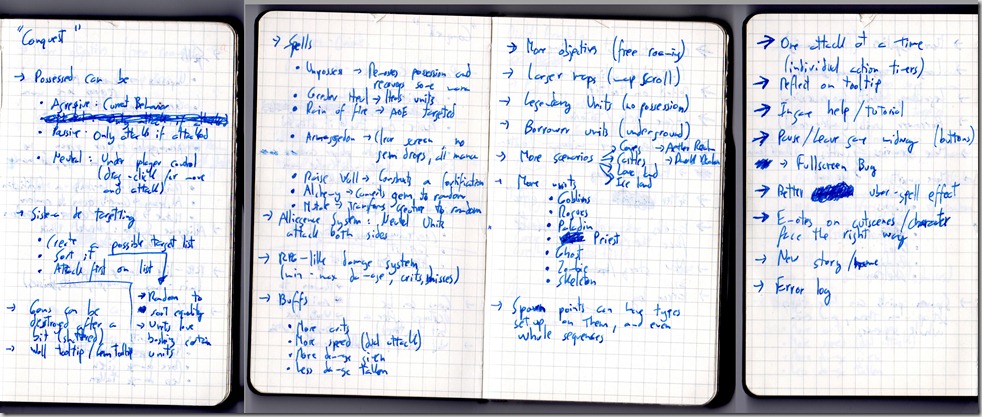 "Conquest"
→ Possessed can be
• Agressive: Current Behavior
• Passive: Only attack if attacked
• Neutral: Under player control
(drag-click for move
and attack)
→ Sistema de targetting
• Create a possible target list
• Sort it
• Attack first on list
→ Random to
sort equality
→ Units love
bashing certain
units
→ Gems can be
destroyed after a
bit (shattered)
→ Wall tooltip / Gem tooltip
→ Spells
• Unpossess → Removes possession and
recovers some mana
• Greater Heal → Heals units
• Rain of fire → AOE targeted
• Armageddon → Clear screen, no
gem drops, all mana
• Raise Wall → Constructs a fortification
• Alchemy → Converts gem to random
• Mutate → Transforms creature to random
→ Allegiance System: Neutral Units
attack both sides
→ RPG-like damage system
(min-max damage, crits, misses)
→ Buffs
• More crits
• More speed (dual attacks)
• More damage given
• Less damage taken
→ More objectives (free roaming)
→ Larger maps (map scroll)
→ Legendary Units (no possession)
→ Borrower units (underground)
→ More scenarios
→ Caves
→ Castles
→ Lava land
→ Ice land
→ More units
• Goblins
• Rogues
• Paladin
• Priest
• Ghost
• Zombie
• Skeleton
→ Spawn points can have types
set up on them, and even
whole sequences
→ One attack at a time
(individual action timers)
→ Reflect on tooltip
→ Ingame help/tutorial
→ Pause/Leave game midway (buttons)
→ Fullscreen Bug
→ Better uber-spell effect
→ Emotes on cutscenes/character
face the right way
→ New story/
→ Error log